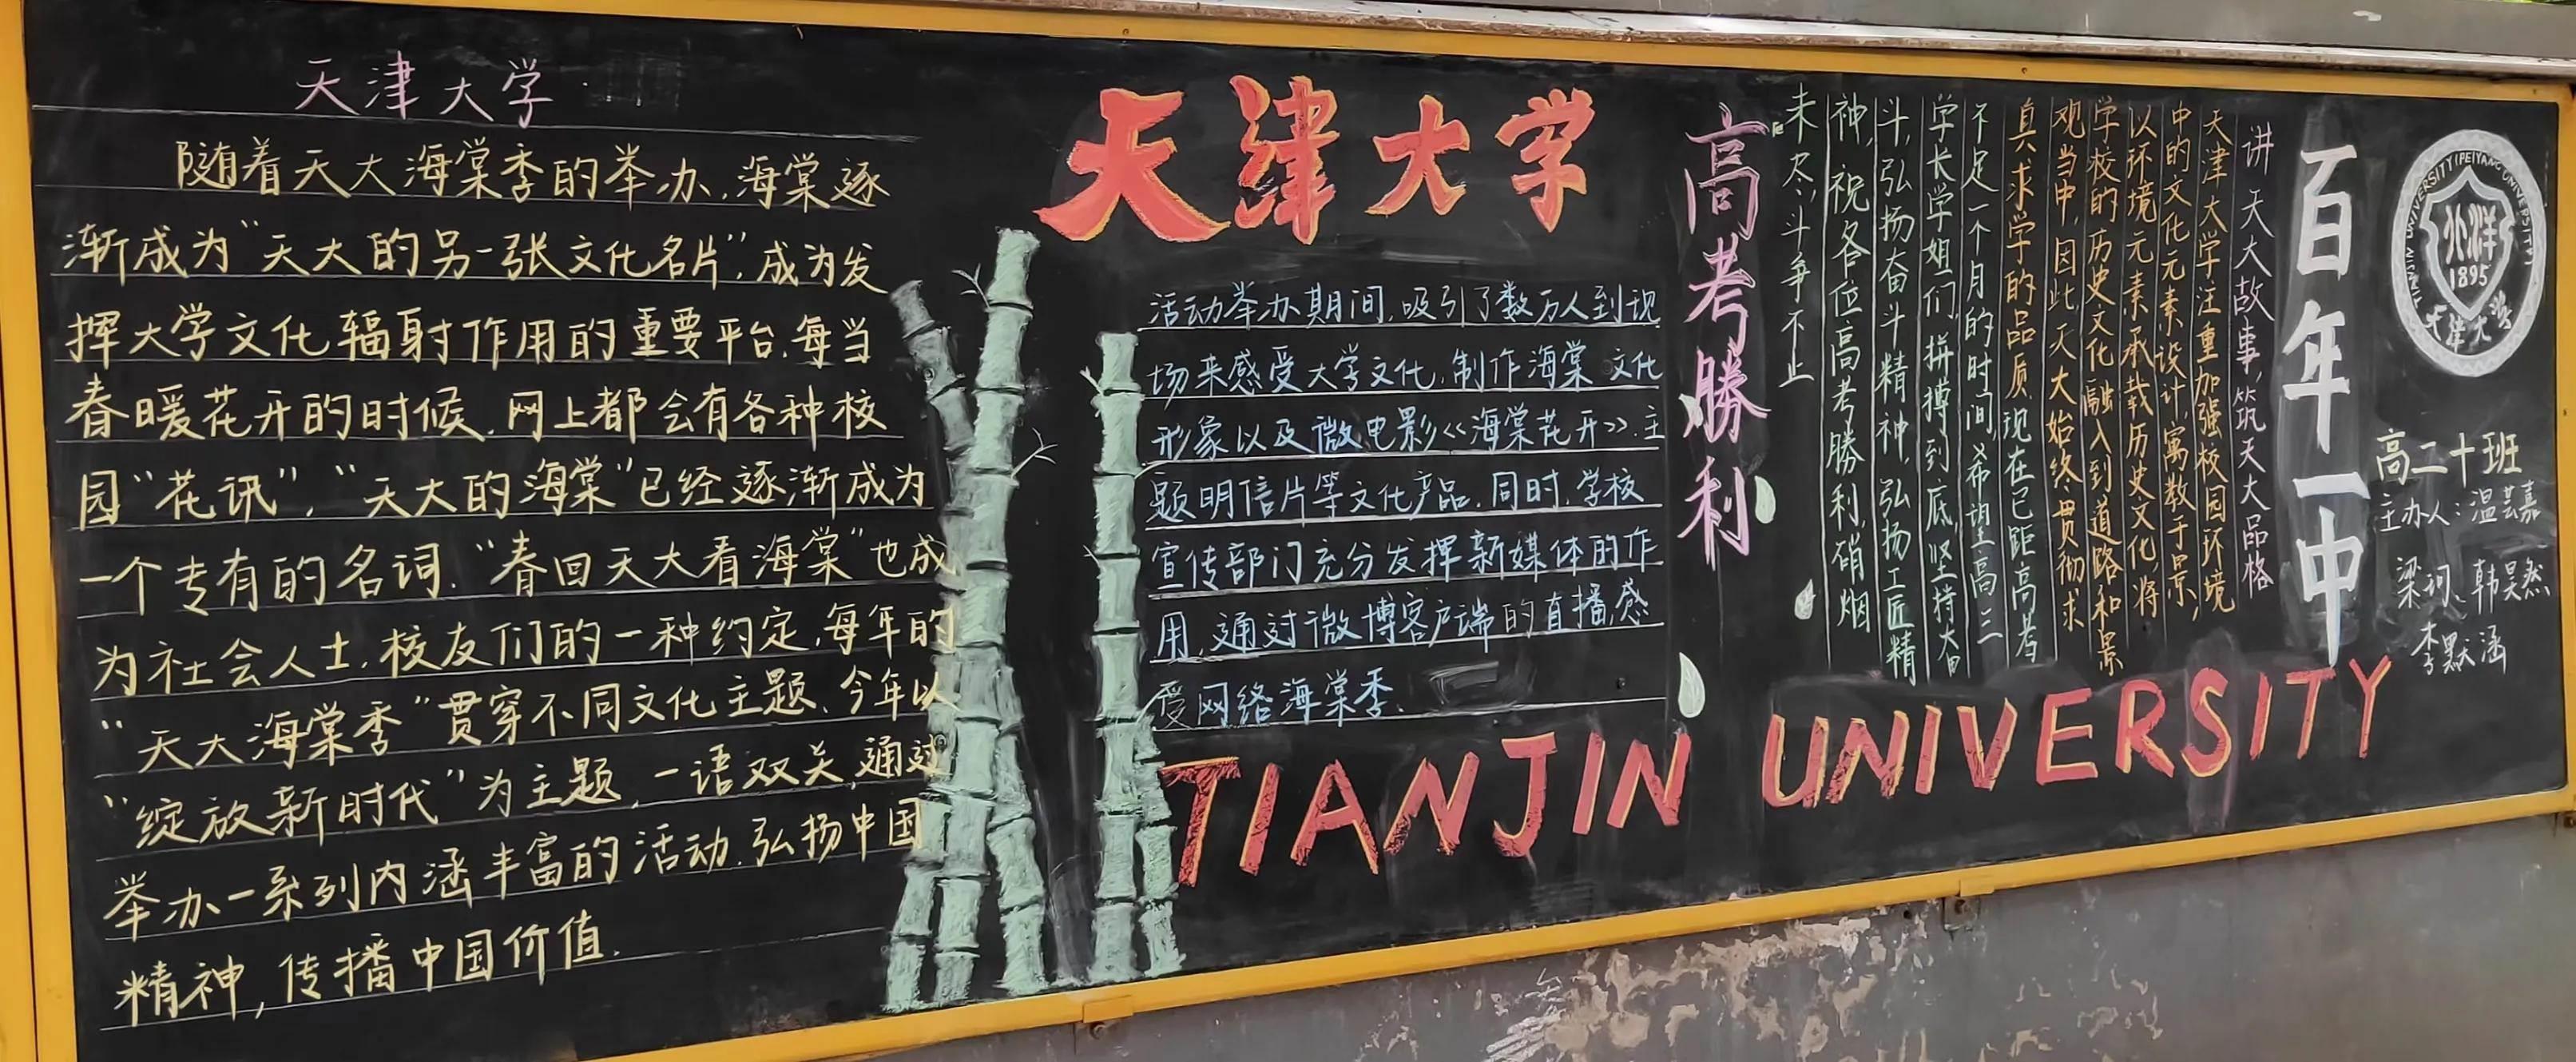 天津大学
随着天大海棠季的举办,海棠逐
渐成为“天大的另一张文化名片”,成为发
挥大学文化辐射作用的重要平台.每当
春暖花开的时候,网上都会有各种校
园“花讯”,“天大的海棠”已经逐渐成为
一个专有的名词.“春回天大看海棠”也成
为社会人士,校友们的一种约定,每年的
“天大海棠季”贯穿不同文化主题、今年以
“绽放新时代”为主题,一语双关,通过
举办一系列内涵丰富的活动.弘扬中国
精神,传播中国价值.
天津大学
活动举办期间,吸引了数万人到现
场来感受大学文化,制作海棠文化
形象以及微电影《海棠花开》.主
题明信片等文化产品.同时,学校
宣传部门充分发挥新媒体的作
用,通过微博客户端的直播,感
受网络海棠季.
TIANJIN UNIVERSITY
1895
天津大学
百年一中
高二十班
主办人:温芸嘉
梁珂、韩昊然
李默涵
讲天大故事,筑天大品格
天津大学注重加强校园环境
中的文化元素设计,寓教于景,
以环境元素承载历史文化,将
学校的历史文化融入到道路和景
观当中,因此,天大始终贯彻求
真求学的品质.现在已距高考
不足一个月的时间,希望高三
学长学姐们,拼搏到底,坚持奋
斗,弘扬奋斗精神,弘扬工匠精
神,祝各位高考勝利,硝烟
未尽,斗争不止
高考勝利